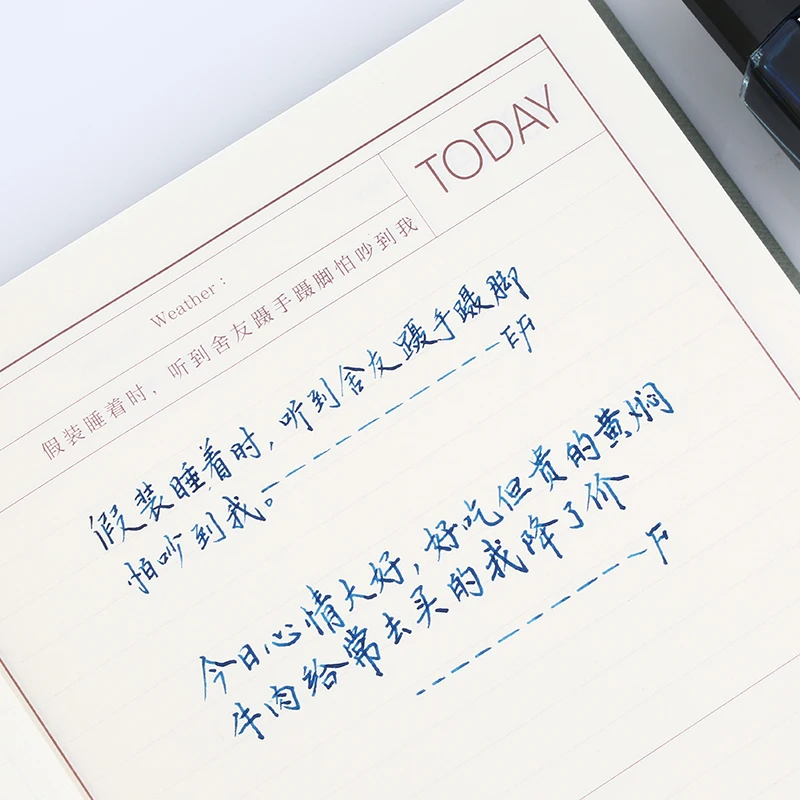 TODAY
Weather：
假装睡着时，听到舍友蹑手蹑脚怕吵到我
假装睡着时，听到舍友蹑手蹑脚
怕吵到我。------------EF
今日心情大好，好吃但贵的黄焖
牛肉给常去买的我降了价
------------F